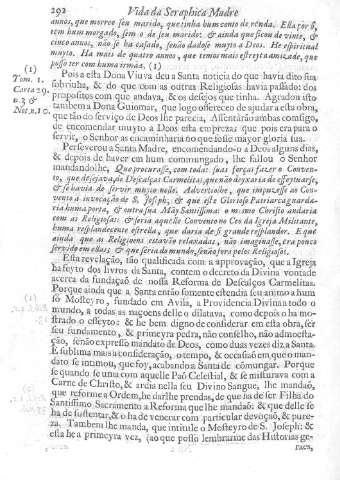 292 Vida da Seraphica Madre
annos, que morreo seu marido, que tinha hum conto de renda. Esta por si,
tem hum morgado, sem o de seu marido: & ainda que ficou de vinte, &
cinco annos, não se ha casado, senão dadose muyto a Deos. He espiritual
muyto. Ha mais de quatro annos, que temos mais estreyta amizade, que
posso ter com huma irmãa. (1)
(1)
Tom. 1.
Carta 29.
n. 3 &
Not. n. 10.
Pois a esta Dona Viuva deu a Santa noticia do que havia dito sua
sobrinha, & do que com as outras Religiosas havia passado: dos
propositos com que andava, & os desejos que tinha. Agradou isto
tambem a Dona Guiomar, que logo offereceo de ajudar a esta obra,
que tão do serviço de Deos lhe parecia. Assentárão ambas comsigo,
de encomendar muyto a Deos esta empreza; que pois era para o
servir, o Senhor as encaminharia no que fosse mayor gloria sua.
Perseverou a Santa Madre, encomendando-o a Deos alguns dias,
& depois de haver em hum commungado, lhe fallou o Senhor
mandandolhe, Que procurasse, com todas suas forças fazer o Conven-
to, que desejava, de Descalças Carmelitas, que não deyxaria de effeytuarse,
& se havia de servir muyto nelle. Advertiolhe, que impuzesse ao Con-
vento a invocação de S. Joseph; & que este Glorioso Patriarca guarda-
ria huma porta, & outra sua Mãy Santissima: o mesmo Christo andaria
com as Religiosas: & seria aquelle Convento no Ceo da Igreja Militante,
huma resplandecente estrella, que daria de si grande resplandor. E que
ainda que as Religioens estavão relaxadas, não imaginasse, era pouco
servido em ellas: & que seria do mundo, senão fora pelos Religiosos.
Esta revelação, tão qualificada com a approvação, que a Igreja
ha feyto dos livros da Santa, contem o decreto da Divina vontade
acerca da fundação de nossa Reforma de Descalços Carmelitas.
Porque ainda que a Santa então somente estendia seu animo a hum
(1)
só Mosteyro, fundado em Avila, a Providencia Divina a todo o
mundo, a todas as naçoens delle o dilatava, como depois o ha mo-
strado o effeyto: & he bem digno de considerar em esta obra, ser
seu fundamento, & primeyra pedra, não conselho, não admoesta-
ção, senão expresso mandato de Deos, como duas vezes diz a Santa.
E sublima mais a consideração, o tempo, & occasião em que o man-
dato se intimou, que foy, acabando a Santa de cõmungar. Porque
se quando se una com aquelle Paõ Celestial, & se misturava com a
Carne de Christo, & ardia nella seu Divino Sangue, lhe mandaõ,
que reforme a Ordem, he darlhe prendas, de que ha de ser Filha do
Santissimo Sacramento a Reforma que lhe mandaõ: & que delle se
ha de sustentar, & o ha de venerar com particular devoção, & pure-
za. Tambem lhe manda, que intitule o Mosteyro de S. Joseph: &
esta he a primeyra vez, (ao que posso lembrarme das Historias ge-
raes,